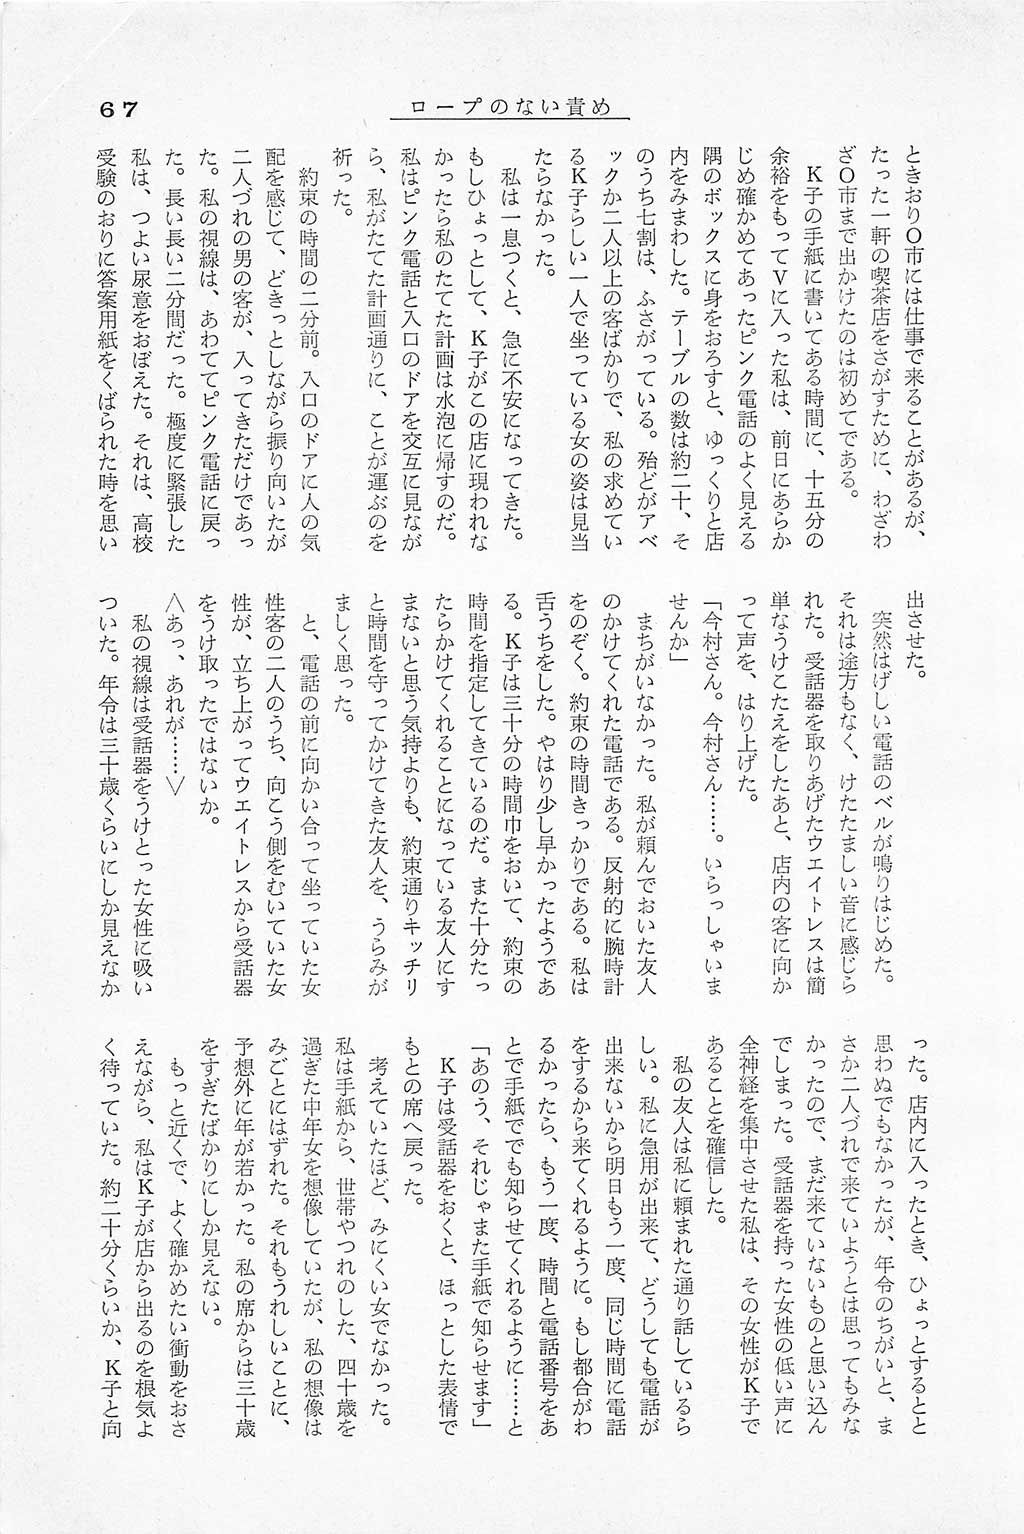 67
ロープのない責め
ときおりO市には仕事で来ることがあるが、
たった一軒の喫茶店をさがすために、わざわ
ざO市まで出かけたのは初めてである。
K子の手紙に書いてある時間に、十五分の
余裕をもってVに入った私は、前日にあらか
じめ確かめてあったピンク電話のよく見える
隅のボックスに身をおろすと、ゆっくりと店
内をみまわした。テーブルの数は約二十、そ
のうち七割は、ふさがっている。殆どがアベ
ックか二人以上の客ばかりで、私の求めてい
るK子らしい一人で坐っている女の姿は見当
たらなかった。
私は一息つくと、急に不安になってきた。
もしひょっとして、K子がこの店に現われな
かったら私のたてた計画は水泡に帰すのだ。
私はピンク電話と入口のドアを交互に見なが
ら、私がたてた計画通りに、ことが運ぶのを
祈った。
約束の時間の二分前。入口のドアに人の気
配を感じて、どきっとしながら振り向いたが
二人づれの男の客が、入ってきただけであっ
た。私の視線は、あわててピンク電話に戻っ
た。長い長い二分間だった。極度に緊張した
私は、つよい尿意をおぼえた。それは、高校
受験のおりに答案用紙をくばられた時を思い
出させた。
突然はげしい電話のベルが鳴りはじめた。
それは途方もなく、けたたましい音に感じら
れた。受話器を取りあげたウエイトレスは簡
単なうけこたえをしたあと、店内の客に向か
って声を、はり上げた。
「今村さん。今村さん……。いらっしゃいま
せんか」
まちがいなかった。私が頼んでおいた友人
のかけてくれた電話である。反射的に腕時計
をのぞく。約束の時間きっかりである。私は
舌うちをした。やはり少し早かったようであ
る。K子は三十分の時間巾をおいて、約束の
時間を指定してきているのだ。また十分たっ
たらかけてくれることになっている友人にす
まないと思う気持よりも、約束通りキッチリ
と時間を守ってかけてきた友人を、うらみが
ましく思った。
と、電話の前に向かい合って坐っていた女
性客の二人のうち、向こう側をむいていた女
性が、立ち上がってウエイトレスから受話器
をうけ取ったではないか。
〈あっ、あれが……〉
私の視線は受話器をうけとった女性に吸い
ついた。年令は三十歳くらいにしか見えなか
った。店内に入ったとき、ひょっとするとと
思わぬでもなかったが、年令のちがいと、ま
さか二人づれで来ていようとは思ってもみな
かったので、まだ来ていないものと思い込ん
でしまった。受話器を持った女性の低い声に
全神経を集中させた私は、その女性がK子で
あることを確信した。
私の友人は私に頼まれた通り話しているら
しい。私に急用が出来て、どうしても電話が
出来ないから明日もう一度、同じ時間に電話
をするから来てくれるように。もし都合がわ
るかったら、もう一度、時間と電話番号をあ
とで手紙ででも知らせてくれるように……と
「あのう、それじゃまた手紙で知らせます」
K子は受話器をおくと、ほっとした表情で
もとの席へ戻った。
考えていたほど、みにくい女でなかった。
私は手紙から、世帯やつれのした、四十歳を
過ぎた中年女を想像していたが、私の想像は
みごとにはずれた。それもうれしいことに、
予想外に年が若かった。私の席からは三十歳
をすぎたばかりにしか見えない。
もっと近くで、よく確かめたい衝動をおさ
えながら、私はK子が店から出るのを根気よ
く待っていた。約二十分くらいか、K子と向